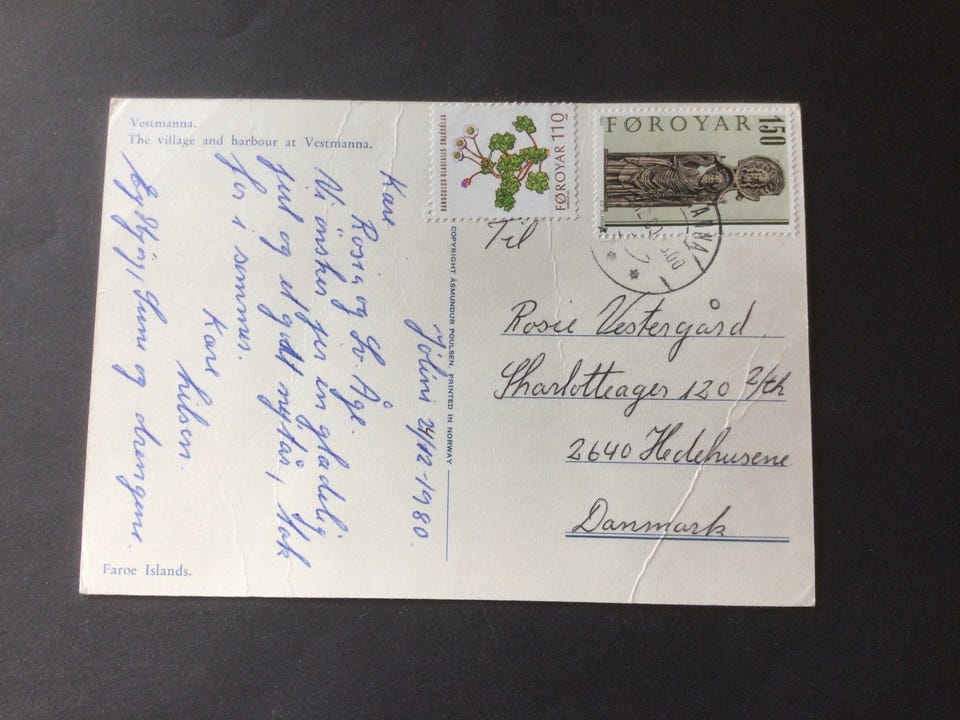 Vestmanna.
The village and harbour at Vestmanna.
FØROYAR 110
RANUNCULUS GLACIALIS
FØROYAR
150
ANNA
COPYRIGHT ÁSMUNDUR POULSEN. PRINTED IN NORWAY
Jólini 24/12-1980.
Kære
Rosia og Sv. Åge.
Vi önsker jer en glædelig
jul og et godt nytår, tak
for i sommer.
Kære
hilsen.
og drengene.
Til
Rosie Vestergård
Sharlotteager 120 2/th
2640 Hedehusene
Danmark
Faroe Islands.